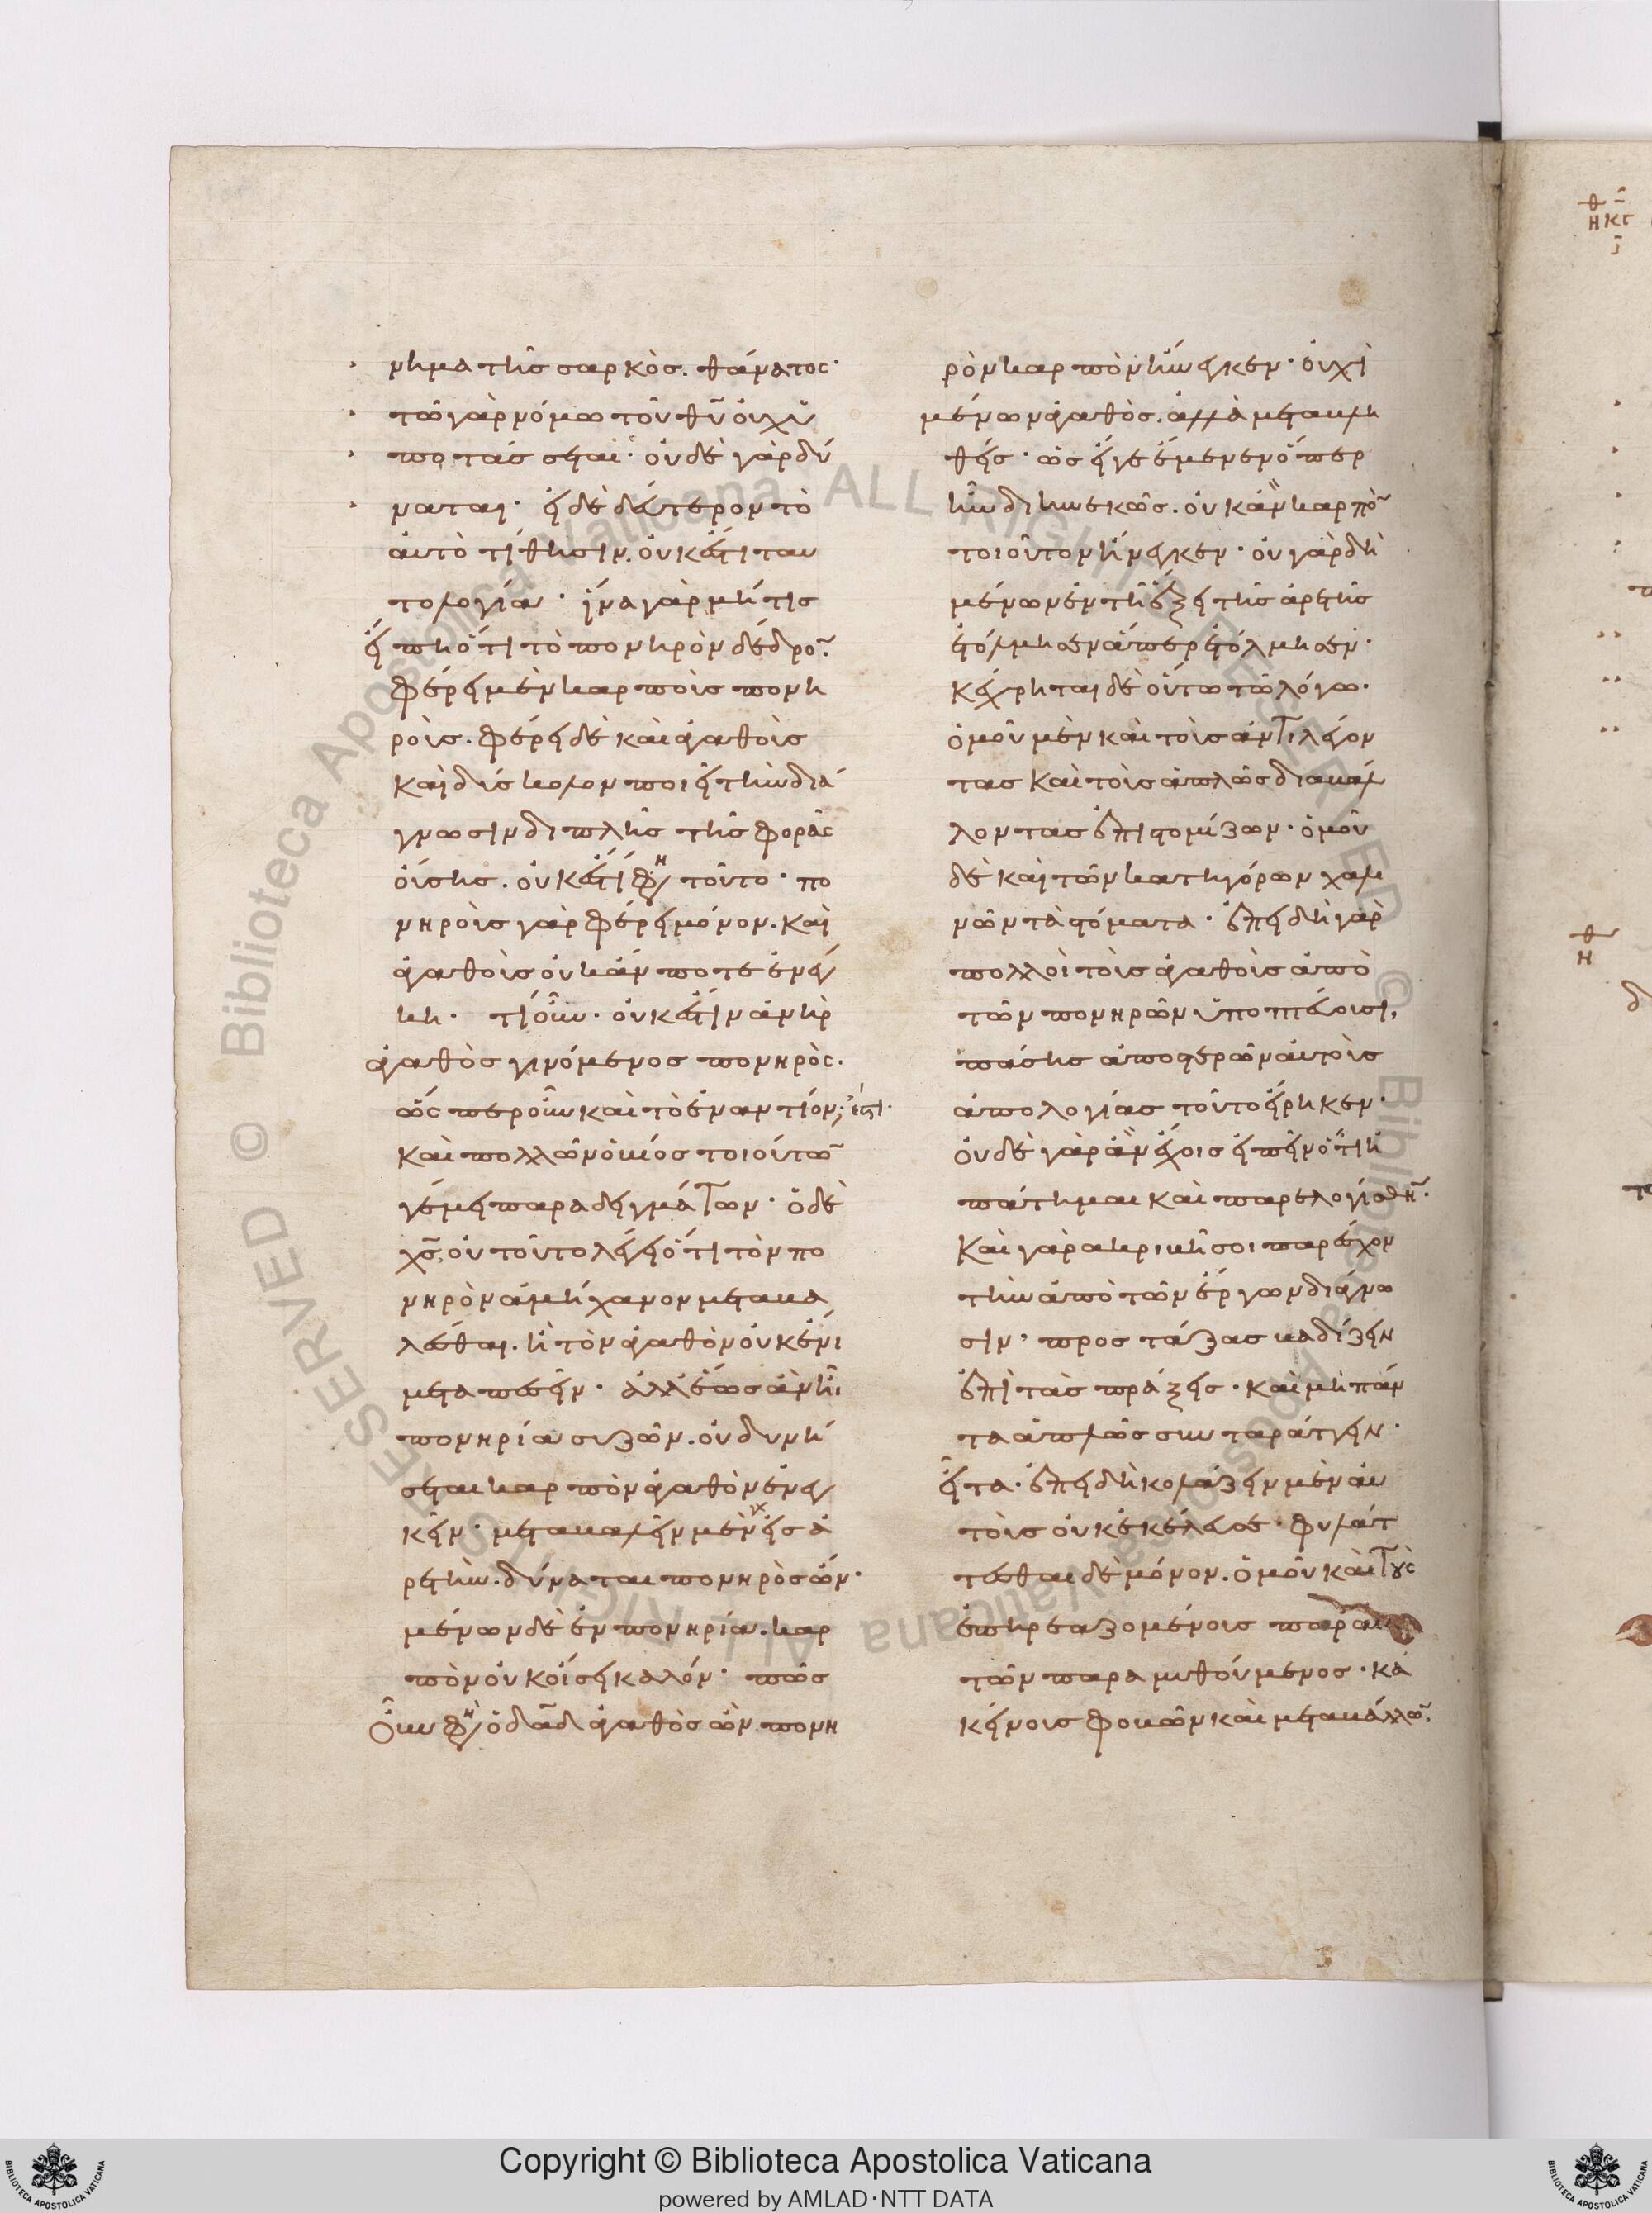 νημα τῆς σαρκὸς. θάνατος·
τῶ γὰρ νόμω τοῦ θῦ οὐχ ὑ
ποτάσσεται· οὐδὲ γὰρ δύ
ναται· εἰ δὲ δεύτερον τὸ
αὐτὸ τίθησιν. οὐκ ἔστι ταυ
τολογία· ἵνα γὰρ μή τις
εἴπη ὅτι τὸ πονηρὸν δένδρο̄·
φέρει μὲν καρποὺς πονη
ροὺς. φέρει δὲ καὶ ἀγαθοὺς
καὶ δύσκολον ποιεῖ τὴν διά
γνωσιν διπλῆς τῆς φορᾶς
οὔσης. οὐκ ἔστι φη τοῦτο· πο
νηροὺς γὰρ φέρει μόνον. καὶ
ἀγαθοὺς οὐκ ἄν ποτε ἐνέγ
κη· τί οὖν· οὐκ ἔστιν ἀνὴρ
ἀγαθὸς γινόμενος πονηρὸς.
ὥσπερ οὖν καὶ τὸ ἐναντίον; ἔστι·
καὶ πολλῶν ὁ βίος τοιούτω̄
γέμει παραδειγμάτων· ὁ δὲ
χς̄ οὐ τοῦτο λέγει ὅτι τὸν πο
νηρὸν ἀμήχανον μεταβα
λέσθαι. ἢ τὸν ἀγαθὸν οὐκ ἔνι
μεταπεσεῖν· ἀλλ' ἕως ἂν ἦι
πονηρία συζῶν. οὐ δυνή
σεται καρπὸν ἀγαθὸν ἐνεγ
κεῖν· μεταβαλεῖν μὲν γὰρ εἰς ἀ
ρετὴν. δύναται πονηρὸς ὤν·
μένων δὲ ἐν πονηρία. καρ
πὸν οὐκ οἴσει καλόν· πῶς
οὖν φη ὁ δᾱδ ἀγαθὸς ὢν πονη
ρὸν καρπὸν ἤνεγκεν· οὐχὶ
μένων ἀγαθὸς. ἀλλὰ μεταβλη
θείς· ὡς εἴγε ἔμενεν ὅπερ
ἦν διηνεκῶς. οὐκ ἂν καρπὸ̄
τοιοῦτον ἤνεγκεν· οὐ γὰρ δὴ
μένων ἐν τῆ ἕξει τῆς ἀρετῆς
ἐτόλμησεν ἅπερ ἐτόλμησεν·
κέχρηται δὲ οὕτω τῶ λόγω·
ὁμοῦ μὲν καὶ τοὺς ἀντιλέγον
τας καὶ τοὺς ἁπλῶς διαβάλ
λοντας ἐπιστομίζων· ὁμοῦ
δὲ καὶ τῶν κατηγόρων χαλι
νῶν τὰ στόματα· ἐπειδὴ γὰρ
πολλοὶ τοὺς ἀγαθοὺς ἀπὸ
τῶν πονηρῶν ὑποπτεύουσι,
πάσης ἀποστερῶν αὐτοὺς
ἀπολογίας τοῦτο εἴρηκεν·
οὐδὲ γὰρ ἂν ἔχοις εἰπεῖν ὅτι ἠ
πάτημαι καὶ παρελογίσθη̄·
καὶ γὰρ ἀκριβῆ σοι παρέσχον
τὴν ἀπὸ τῶν ἔργων διάγνω
σιν· προστάξας βαδίζειν
ἐπὶ τὰς πράξεις· καὶ μὴ πάν
τα ἁπλῶς συνταράττειν·
εἶτα. ἐπειδὴ κολάζειν μὲν αὐ
τοὺς οὐκ ἐκέλευσε· φυλάτ
τεσθαι δὲ μόνον. ὁμοῦ καὶ τοὺς
ἐπηρεαζομένους παρ' αὐ
τῶν παραμυθούμενος· κα
κείνους φοβῶν καὶ μεταβάλλω̄·
Copyright © Biblioteca Apostolica Vaticana
powered by AMLAD·NTT DATA